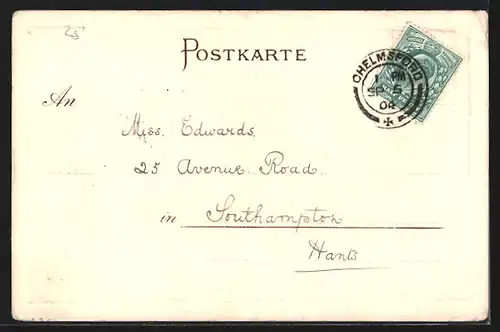 25
POSTKARTE
CHELMSFORD
1 PM
SP 5
04
An
Miss. Edwards.
25 Avenue Road.
in Southampton
Hants